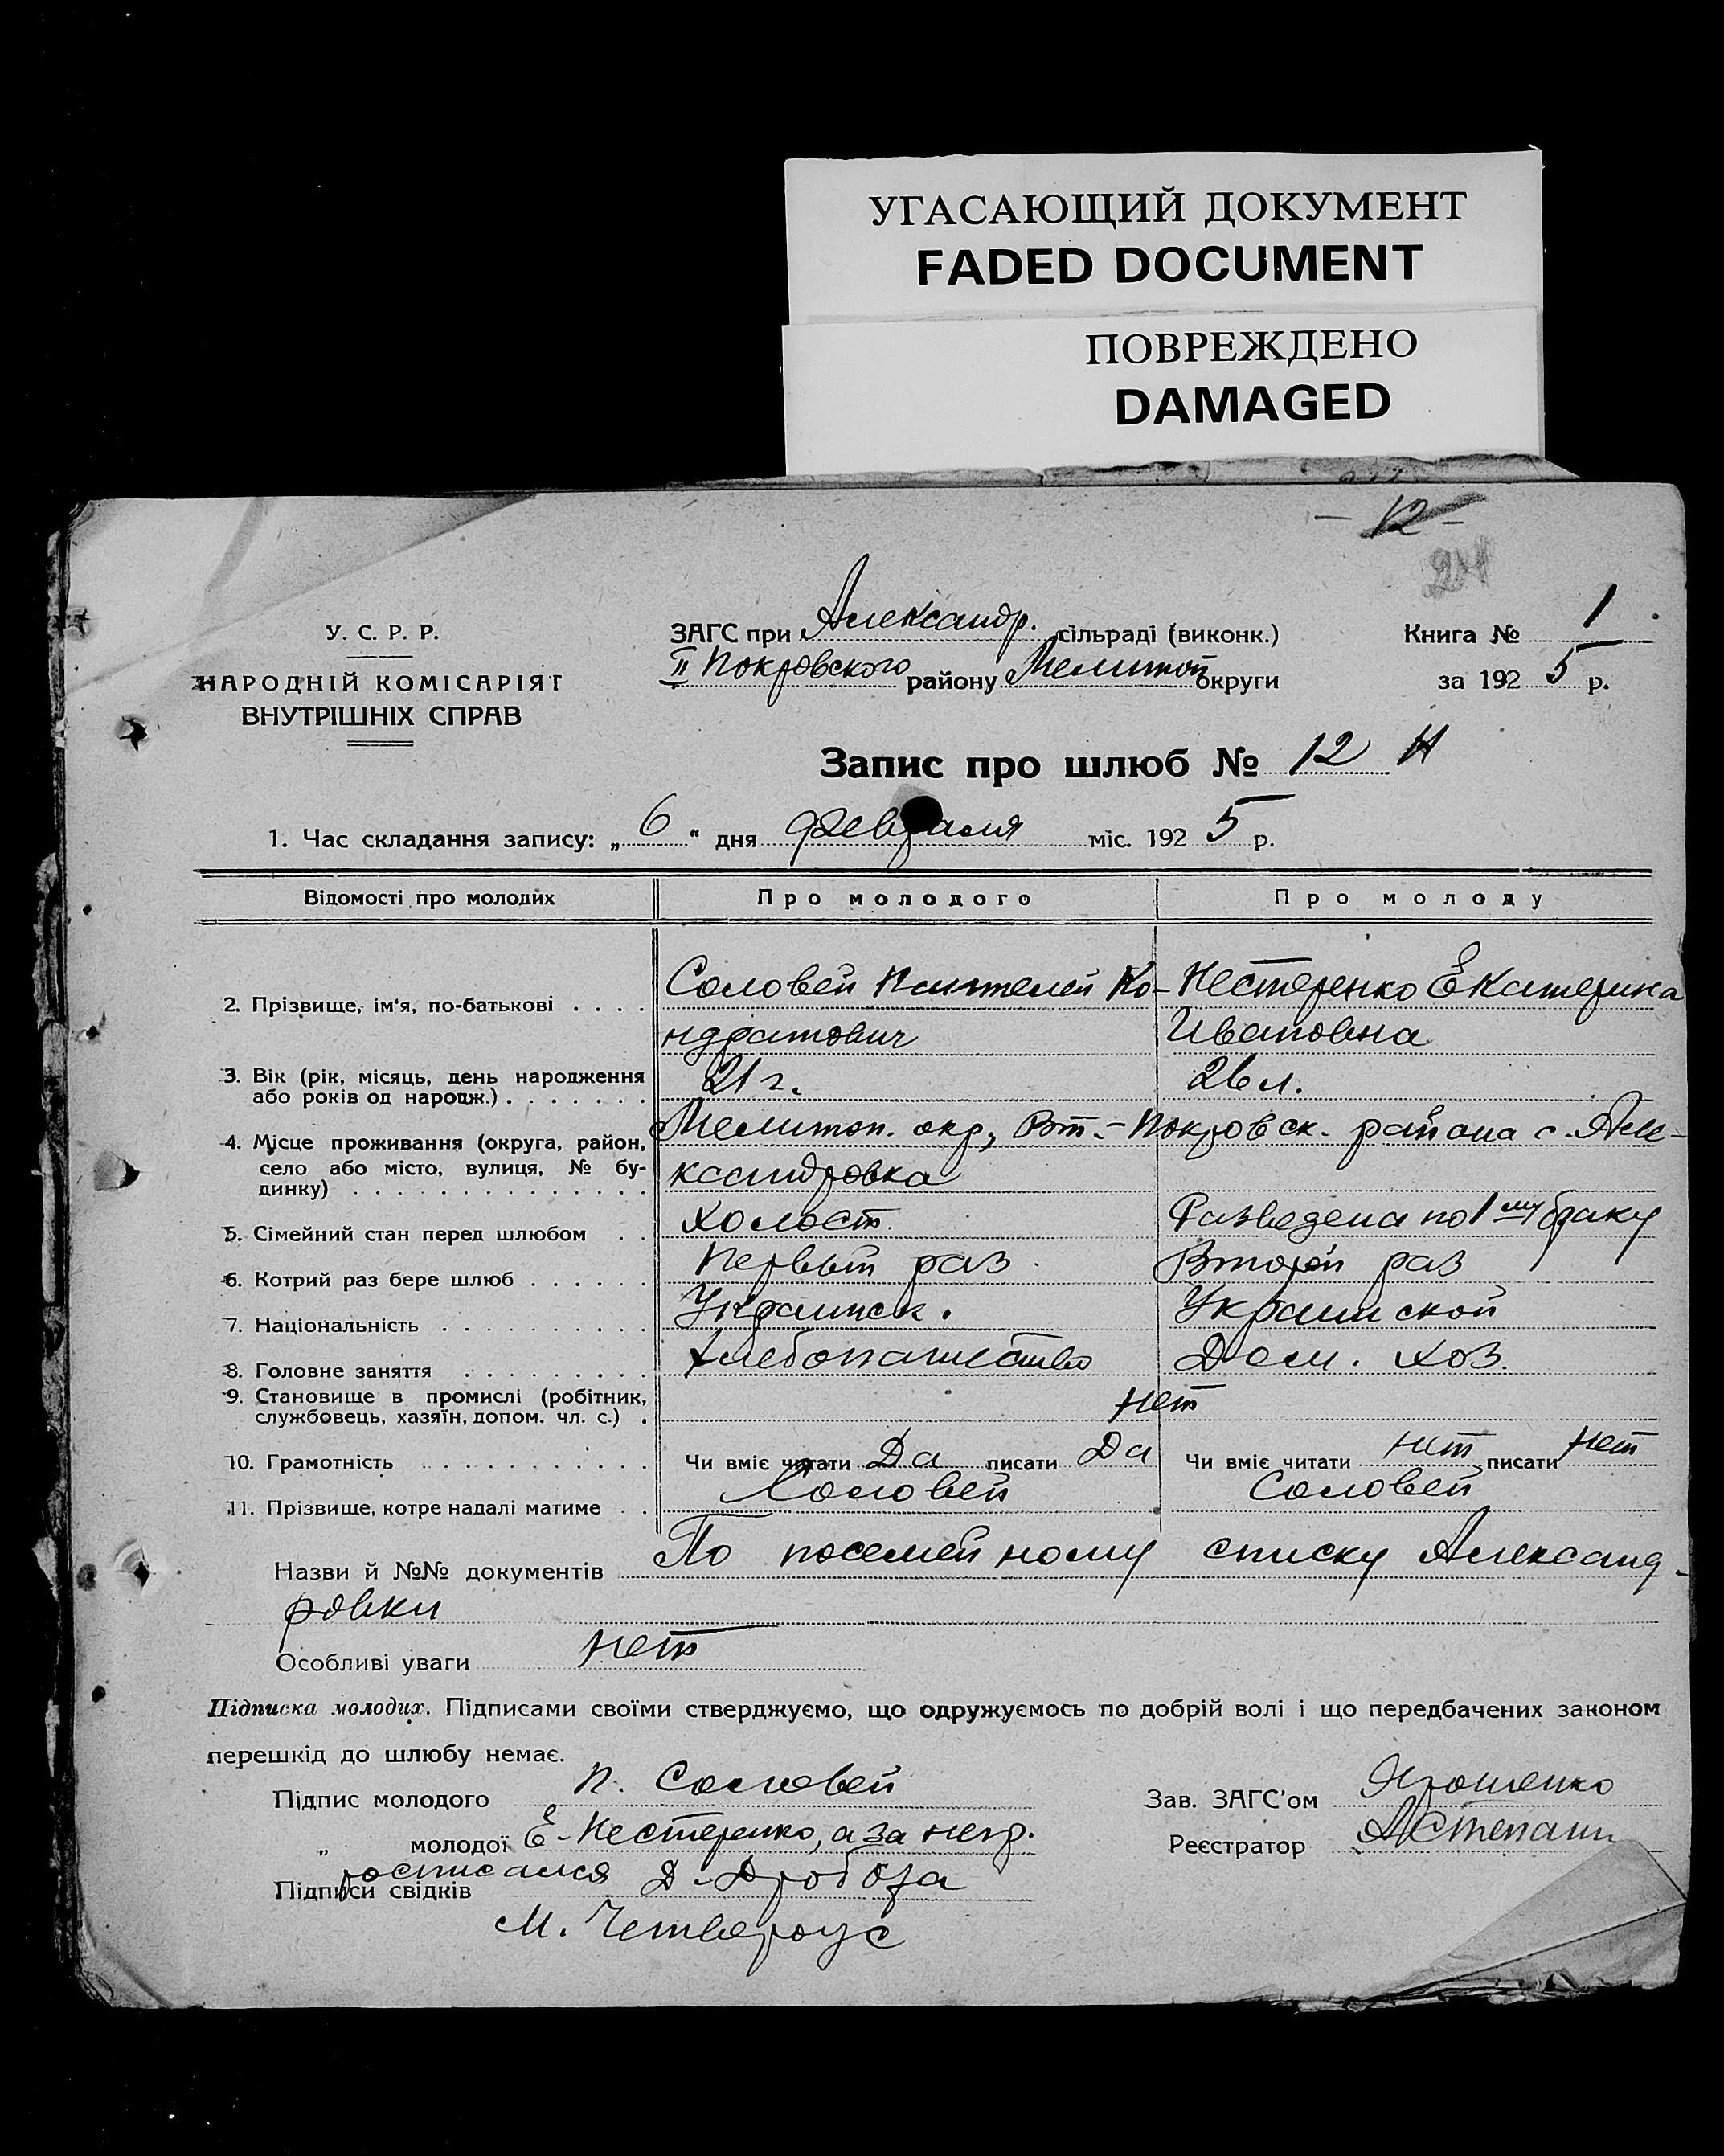 УГАСАЮЩИЙ ДОКУМЕНТ
FADED DOCUMENT
ПОВРЕЖДЕНО
DAMAGED
- 12 -
У. С. Р. Р.
НАРОДНІЙ КОМІСАРІЯТ
ВНУТРІШНІХ СПРАВ
ЗАГС при Александр. сільраді (виконк.)
II Покровского району Мелитоп округи
Книга № 1
за 192 5 р.
Запис про шлюб № 12 Н
1. Час складання запису: „ 6 “ дня февраля міс. 192 5 р.
Відомості про молодих Про молодого Про молоду
2. Прізвище, ім'я, по-батькові . . . . Соловей Пантелей Ко- Нестеренко Екатерина
ндратович Ивановна
3. Вік (рік, місяць, день народження
або років од народж.) . . . . . . . 21 г. 26 л.
4. Місце проживання (округа, район, Мелитоп. окр., Вт.-Покровск. района с. Але-
село або місто, вулиця, № бу-
динку) . . . . . . . . . . . . . . ксандровка
5. Сімейний стан перед шлюбом . . Холост. Разведена по 1му браку
6. Котрий раз бере шлюб . . . . . . Первый раз Второй раз
7. Національність . . . . . . . . . . Украинск. Украинской
8. Головне заняття . . . . . . . . . Хлебопашество Дом. хоз.
9. Становище в промислі (робітник,
службовець, хазяїн, допом. чл. с.) . нет
10. Грамотність . . . . . . . . . . . Чи вміє читати Да писати Да Чи вміє читати нет писати нет
11. Прізвище, котре надалі матиме . . Соловей Соловей
Назви й №№ документів По посемейному списку Александ-
ровки
Особливі уваги нет
Підписка молодих. Підписами своїми стверджуємо, що одружуємось по добрій волі і що передбачених законом
перешкід до шлюбу немає.
Підпис молодого П. Соловей
Зав. ЗАГС'ом Ярошенко
„ молодої Е. Нестеренко, а за негр.
Реєстратор
росписался Д. Дробоза
Підписи свідків
М. Четвероус